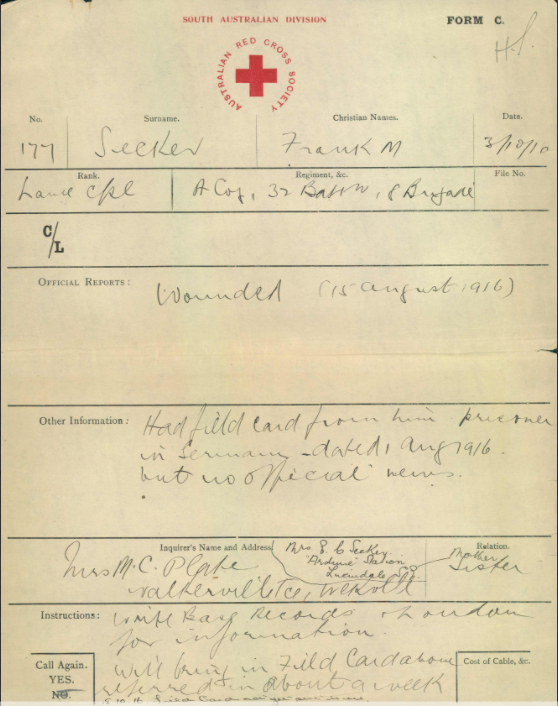 SOUTH AUSTRALIAN DIVISION
FORM C.
H.S.
AUSTRALIAN RED CROSS SOCIETY
No. Surname. Christian Names. Date.
177 Secker Frank M 3/10/
Rank. Regiment, &c. File No.
Lance Cpl A Coy, 32 Battn, 8 Brigade
C/L
OFFICIAL REPORTS: Wounded (15 August 1916)
Other Information: Had field card from him prisoner
in Germany - dated 1 Aug 1916.
but no official news.
Inquirer's Name and Address Relation.
Mrs E C Secker
"Ardune" Station
Lucindale
Mother
Mrs M. C. Plate Sister
Walkerville tce,
Instructions: Write Base Records & London
for information.
Will bring in Field Card above
referred in about a week
Call Again.
YES.
NO.
Cost of Cable, &c.
Field Card